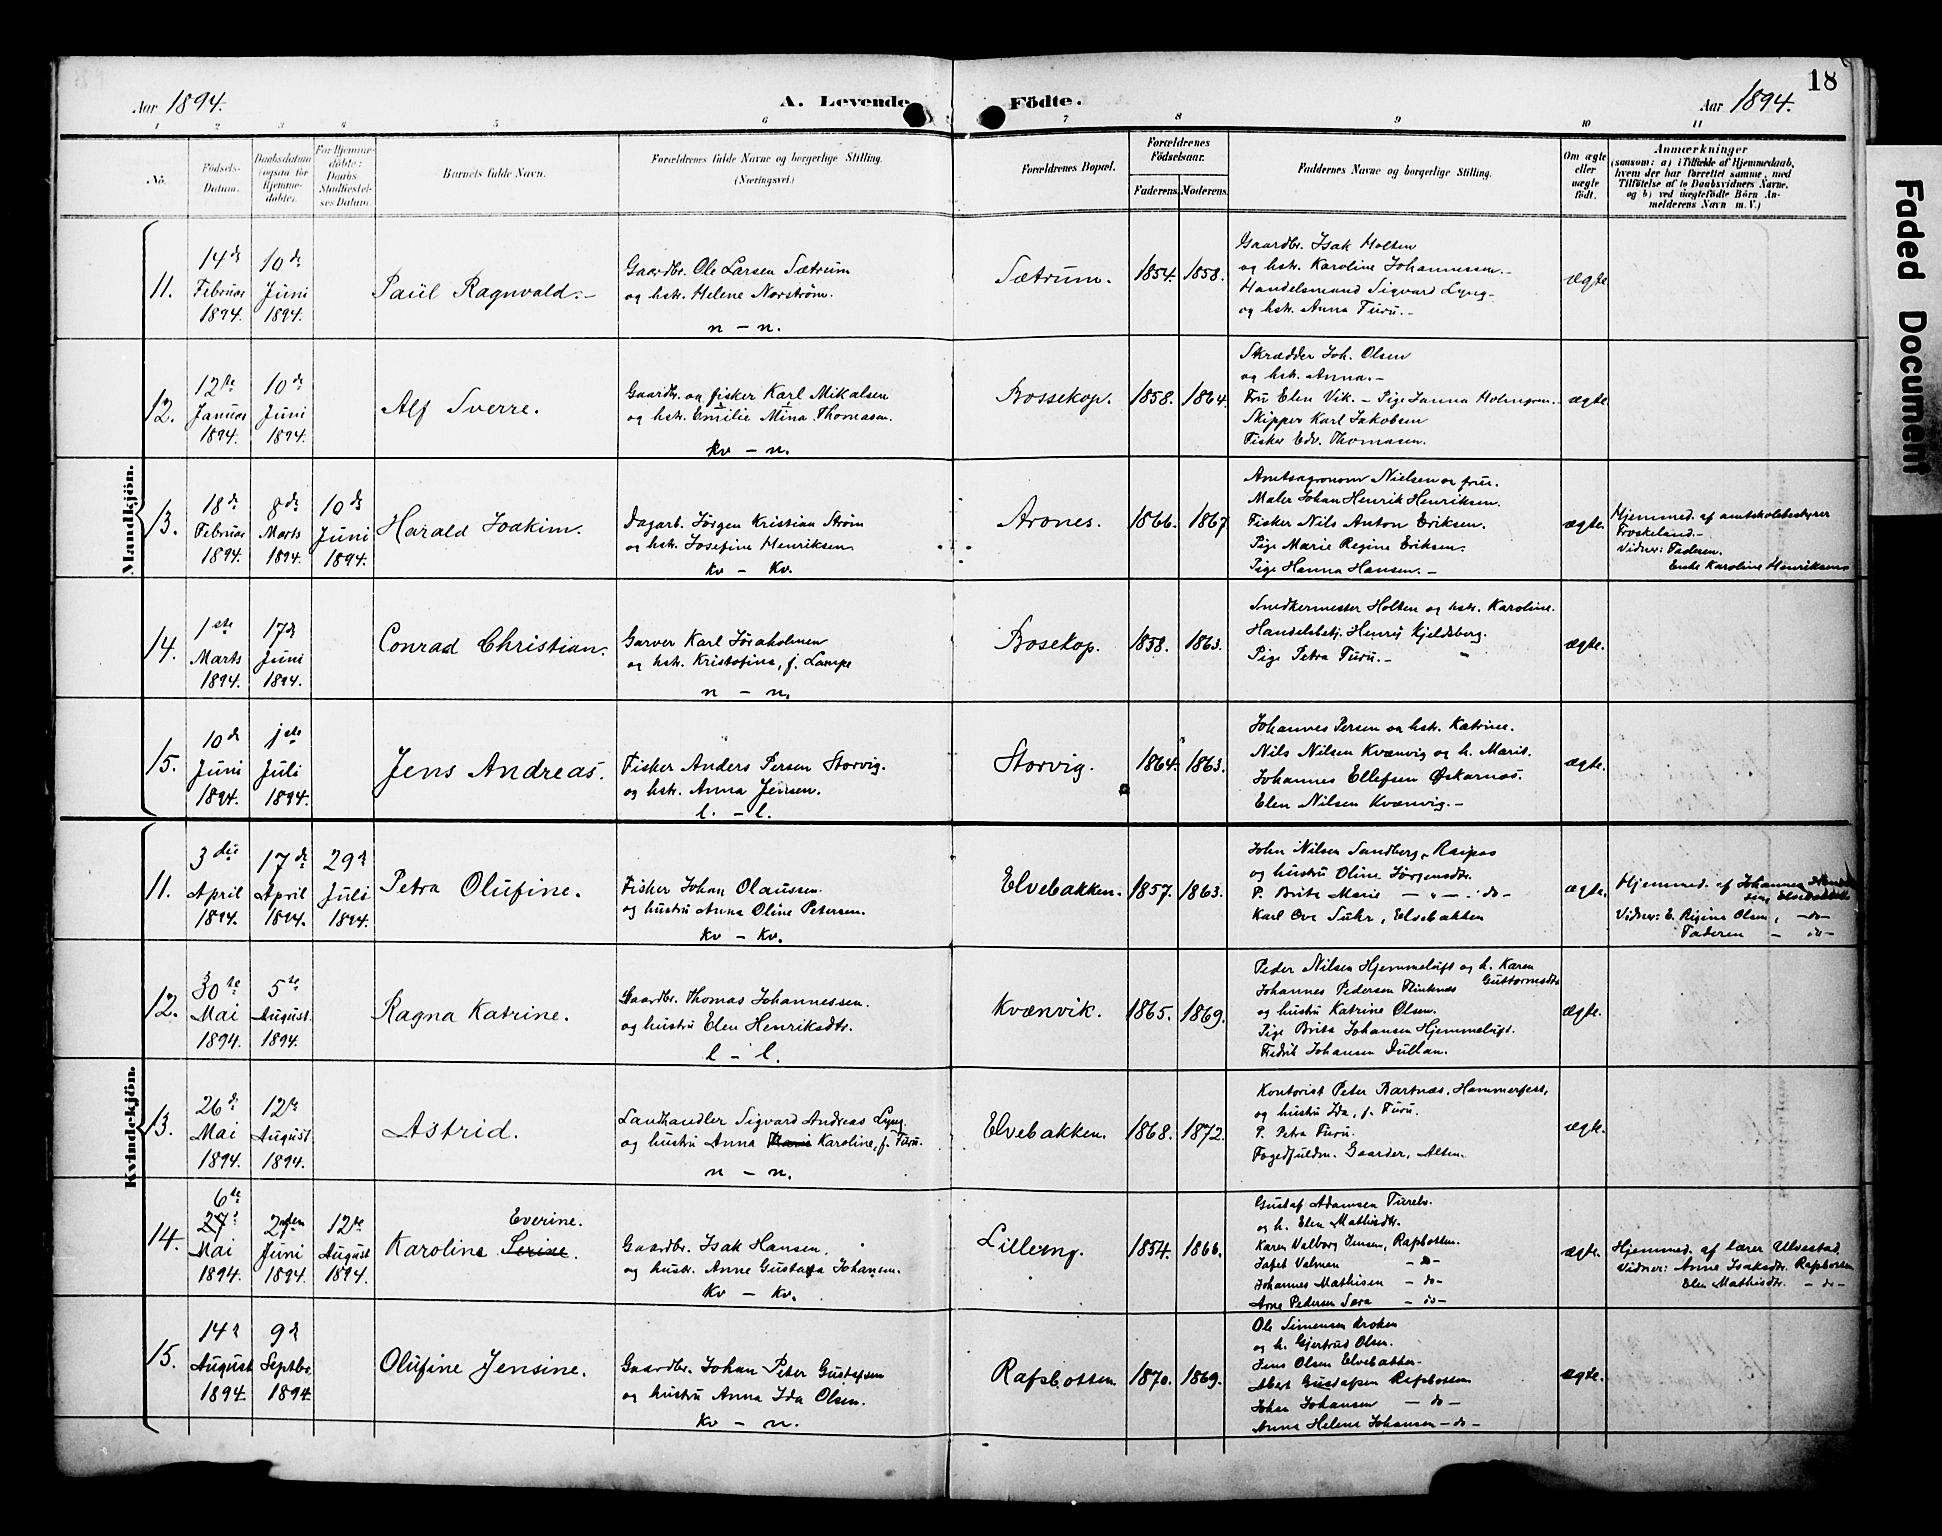 Aar 1894.
A. Levende Födte.
Aar 1894.
18
Faded Document
1 2 3 4 5 6 7 8 9 10 11
No.
Födsels-
Datum.
Daabsdatum
(ogsaa for
Hjemme-
døbte).
For Hjemme-
døbte:
Daabs-
Stadfæstel-
ses Datum
Barnets fulde Navn.
Forældrenes fulde Navne og borgerlige Stilling.
(Næringsvei.)
Forældrenes Bopæl.
Forældrenes
Födselsaar.
Faderens. Moderens.
Faddernes Navne og borgerlige Stilling.
Om ægte
eller
uægte
födt.
Anmærkninger
(saasom: a) i Tilfælde af Hjemmedaab,
hvem der har forrettet samme, med
Tilföielse af to Daabsvidners Navne,
og b) ved uægtefödte Börn An-
melderens Navn m. V.)
Mandkjön.
11.
14de
Februar
1894.
10de
Juni
1894.
Paul Ragnvald.-
Gaardbr. Ole Larsen Sætrum
og hstr. Helene Norström.
n - n.
Sætrum.
1854. 1858.
Gaardbr. Isak Holten
og hstr. Karoline Johannessen.-
Handelsmand Sigvard Lyng-
og hstr. Anna Furu.-
ægte
12.
12te
Januar
1894.
10de
Juni
1894.
Alf Sverre.
Gaardbr. og fisker Karl Mikalsen
og hstr. Emilie Mina Thomasen.
kv - n.
Bossekop.
1858. 1864.
Skrædder Joh. Olsen
og hstr. Anna.-
Fru Elen Vik. - Pige Janna Holmgren.
Skipper Karl Jakobsen
Fisker Edv. Thomasen.
ægte
13.
18de
Februar
1894.
8de
Marts
1894.
10de
Juni
1894.
Harald Joakim.
Dagarb. Jörgen Kristian Ström
og hstr. Josefine Henriksen.
Kv - Kv.
Arones.
1866. 1867
Amtsagronom Nielsen og frue.
Maler Johan Henrik Henriksen.
Fisker Nils Anton Eriksen.
Pige Marie Regine Eriksen.
Pige Hanna Hansen.-
ægte.
Hjemmed. af amtskolebestyrer
Froskeland.-
Vidner: Faderen.
Enke Karoline Henriksen
14.
1ste
Marts
1894.
17de
Juni
1894.
Conrad Christian.
Garver Karl
og hstr. Kristofine, f. Lampe
n - n.
Bosekop.
1858. 1863.
Snedkermester Holten og hstr. Karoline.
Handelsbetj. Henrij Kjeldsberg.
Pige Petra Furu.-
ægte.
15.
10de
Juni
1894.
1ste
Juli
1894.
Jens Andreas.
Fisker Anders Persen Storvig.
og hstr. Anna Jensen.
l. - l.
Storvig.
1864. 1863.
Johannes Persen og hstr. Katrine.
Nils Nilsen Kvænvig og h. Marit.
Johannes Ellefsen Øskarnæs.
Elen Nilsen Kvænvig.-
ægte.
Kvindekjön.
11.
3die
April
1894.
17de
April
1894.
29de
Juli
1894.
Petra Olufine.
Fisker Johan Olaussen.
og hustru Anna Oline Petersen.
Kv - Kv.
Elvebakken.
1857. 1863.
John Nilsen Sandberg, Raipas
og hustru Oline Jörgensdtr.
P. Brita Marie - " - : do -
Karl Ove Suhr, Elvebakken
ægte.
Hjemmed. af Johannes
Elvebakken
Vidner: E. Regine Olsen, - do -
Faderen - do -
12.
30te
Mai
1894.
5te
August.
1894.
Ragna Katrine.
Gaardbr. Thomas Johannessen.
og hustru Elen Henriksdtr.
l - l.
Kvænvik.
1865. 1869.
Peder Nilsen Hjemmeluft og h. Karen
Guttormsdtr
Johannes Pedersen Flintnæs
og hustru Katrine Olsen.
Pige Brita Johansen Hjemmeluft.
Fredrik Johansen Dullan.
ægte.
13.
26de
Mai
1894.
12te
August
1894.
Astrid.
Landhandler Sigvard Andreas Lyng.
og hustru Anna Marie Karoline, f. Furu.
n - n.
Elvebakken.
1868. 1872.
Kontorist Peter Bartnæs, Hammerfest,
og hustru Ida, f. Furu.
P. Petra Furu.
Fogedfuldm. Gaarder, Alten.
ægte.
14.
6te
27de
Mai
1894.
2den
Juni
1894.
12te
August
1894.
Everine.
Karoline Serine.
Gaardbr. Isak Hansen.
og hustr. Anne Gustava Johansen.
Kv - Kv.
Lilleeng.
1854. 1866.
Gustaf Adamsen Tverelv.
og h. Elen Mathisdtr.
Karen Valborg Jensen, Rafsbotten.
Jafet Valman - do -
Johannes Mathisen - do -
Arne Pedersen Sara - do -
ægte.
Hjemmed. af lærer Ulvestad.
Vidner: Anne Isaksdtr. Rafsbotten
Elen Mathisdtr. - do -
15.
14de
August
1894.
9de
Septbr.
1894
Olufine Jensine.
Gaardbr. Johan Peter Gustafsen
og hustru Anna Ida Olsen.
Kv - n.
Rafsbotten
1870. 1869.
Ole Simonsen Kroken
og h. Gjertrud Olsen.
Jens Olsen Elvebakken.
Albert Gustafsen Rafsbotten
Johan Johansen - do -
Anna Helene Johansen - do -
ægte.